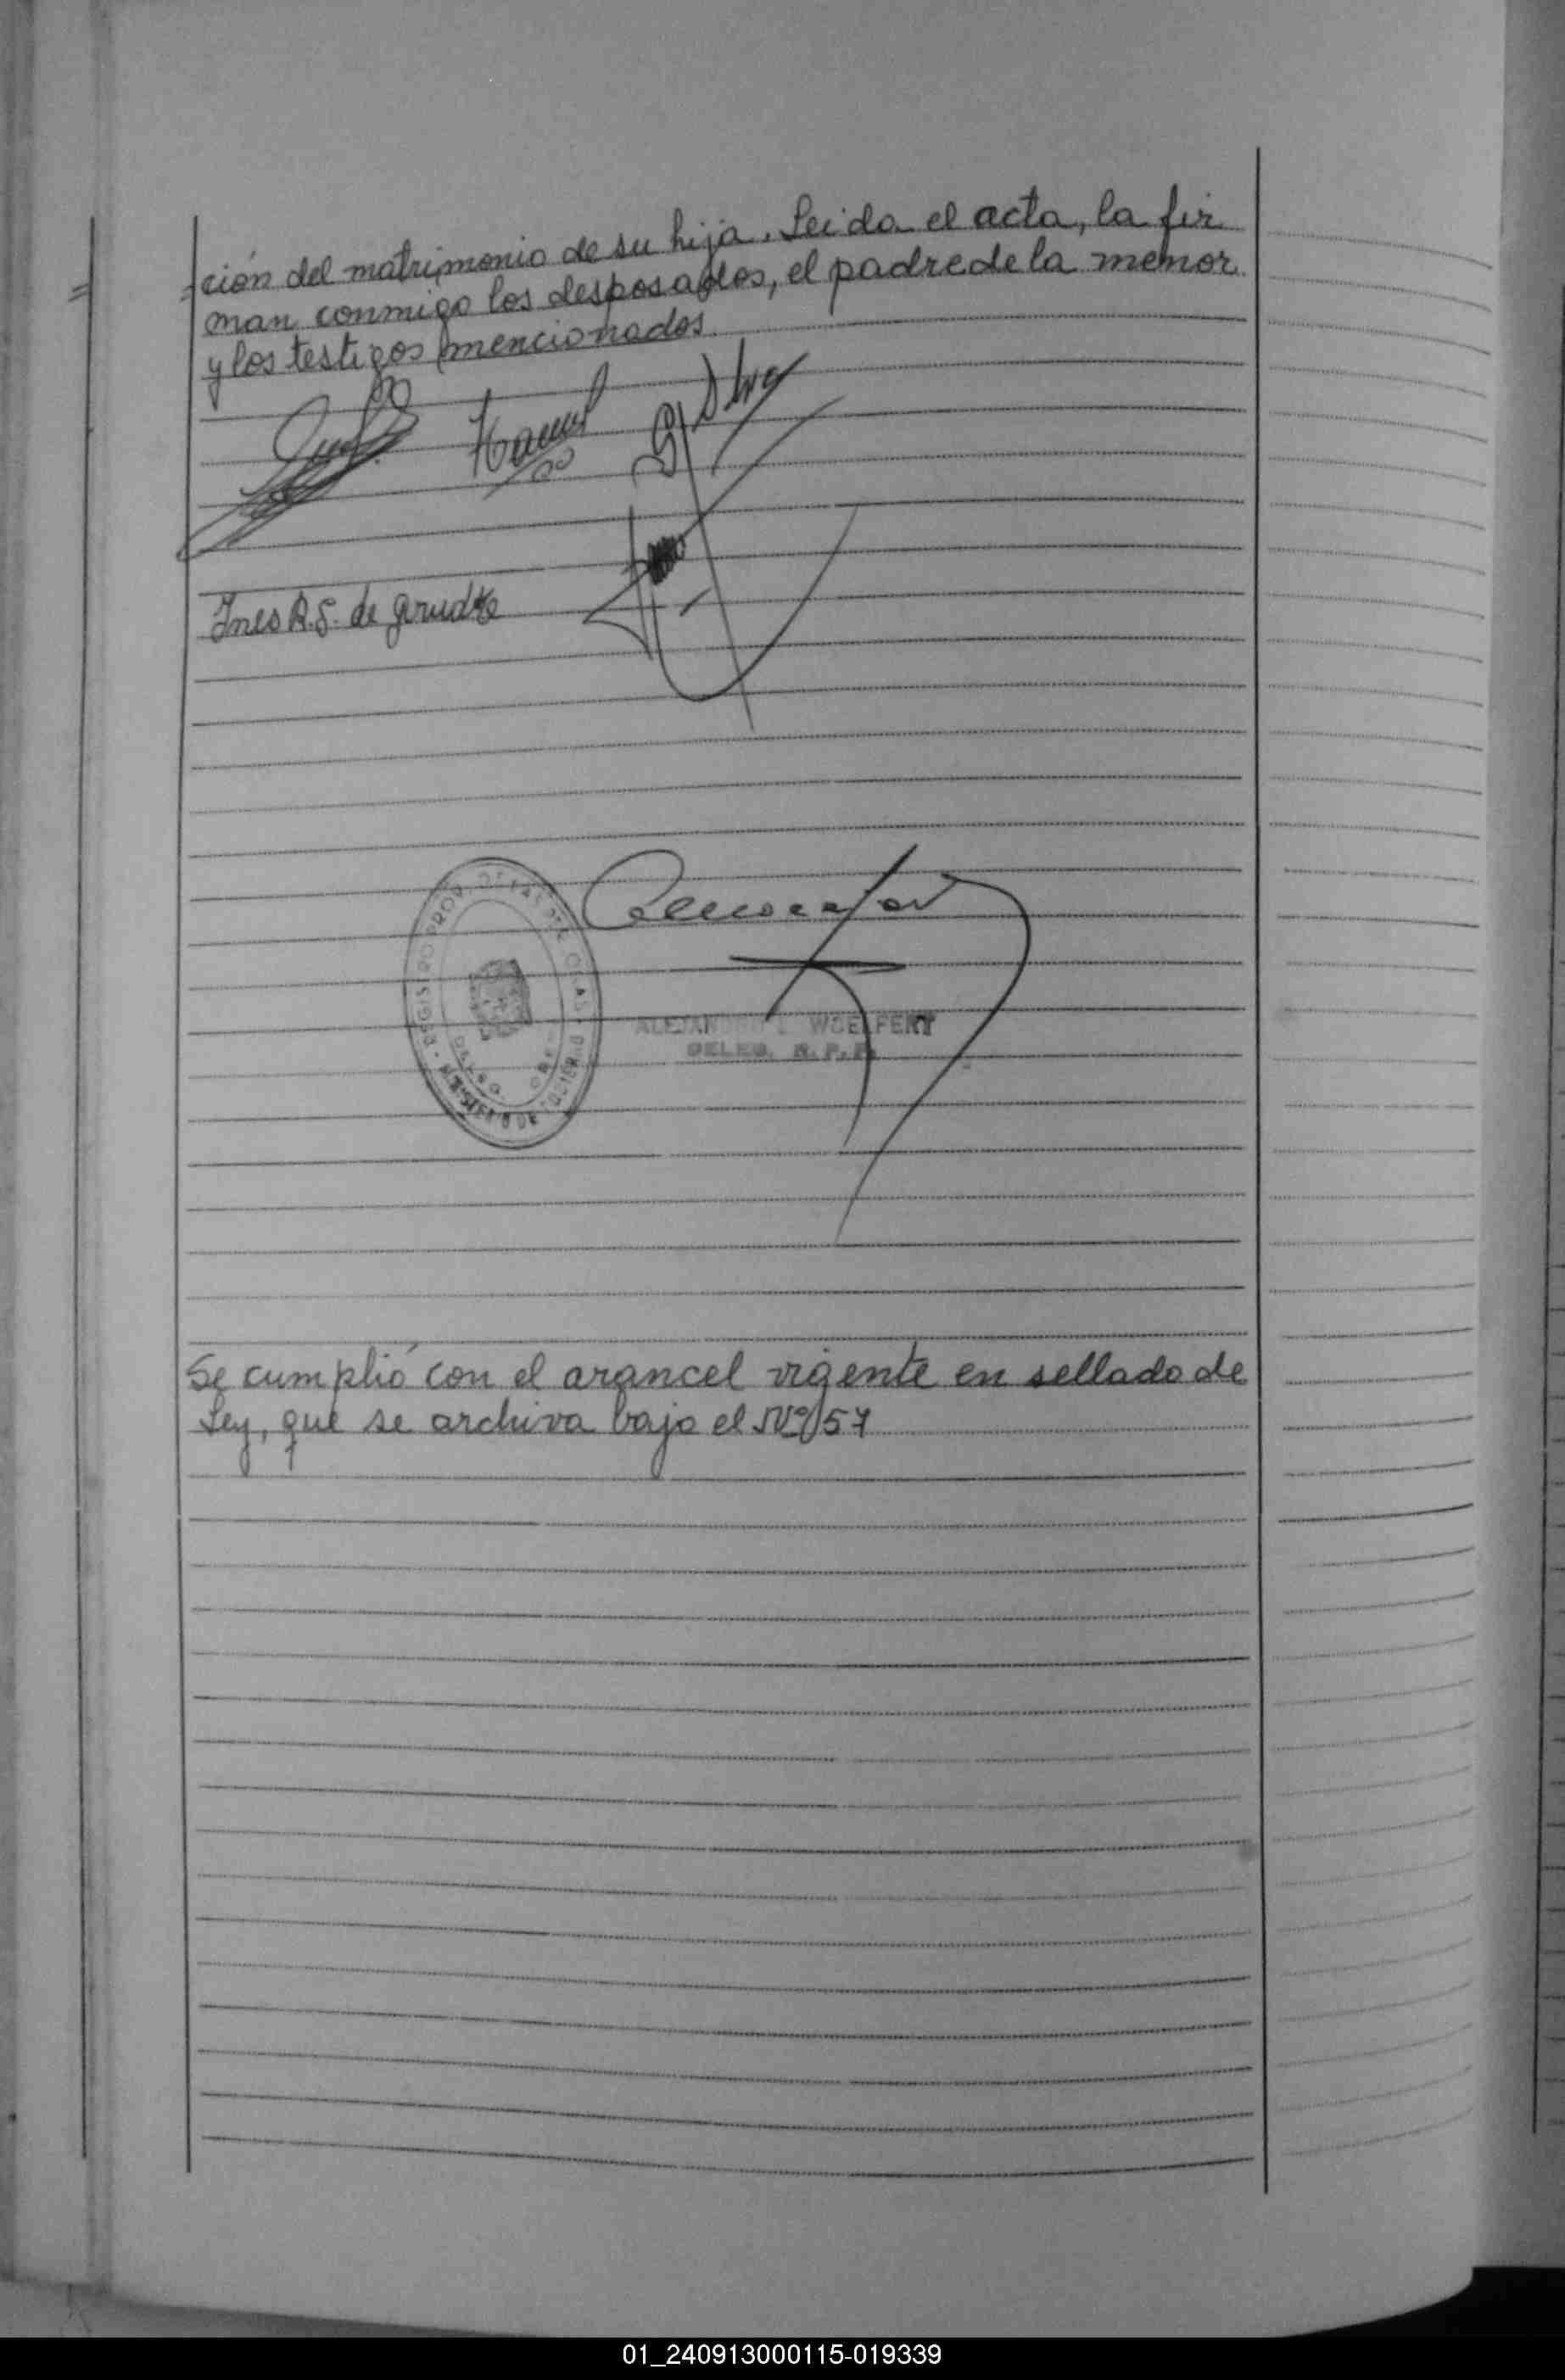 ción del matrimonio de su hija. Leida el acta, la fir
man conmigo los desposados, el padre de la menor
y los testigos mencionados
Ines R. G. de Grudke
REGISTRO PROV. DE LAS PERSONAS
MINISTERIO DE GOBIERNO
WOELFERT
DELEG. R. P. P.
Se cumplió con el arancel vigente en sellado de
Ley, que se archiva bajo el Nº 57
01_240913000115-019339